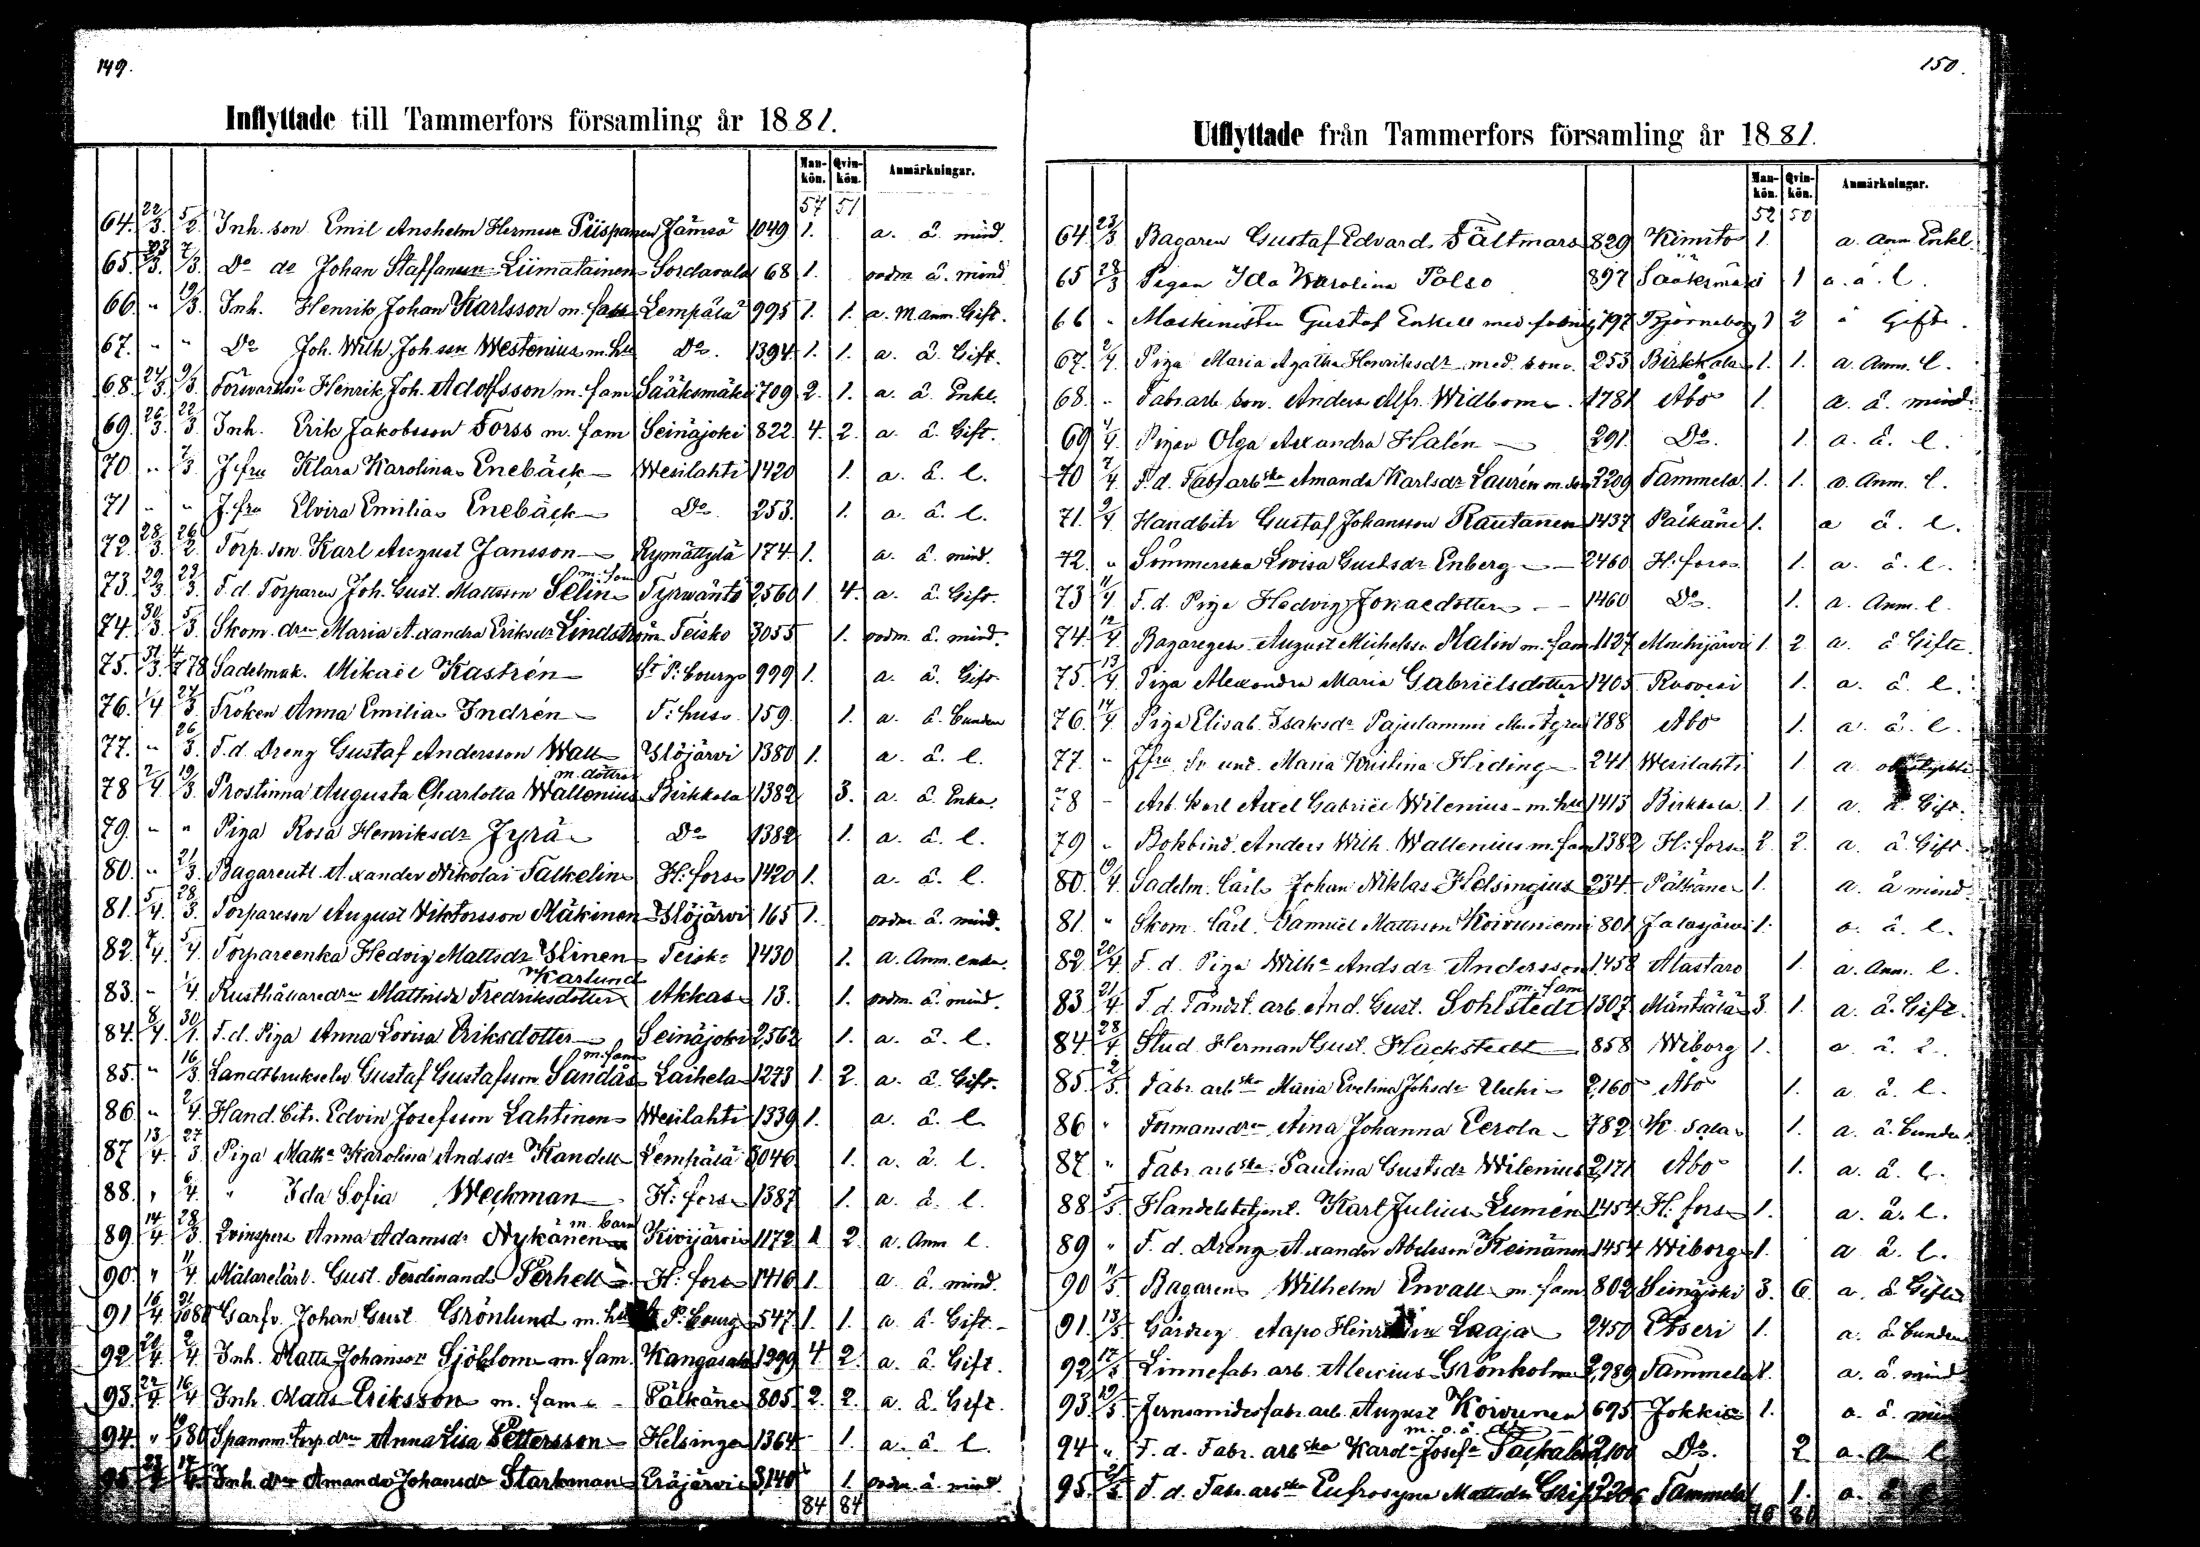 149.
Inflyttade till Tammerfors församling år 1881.
Mankön. Qvinkön. Anmärkningar.
57 51
64. 22/3. 5/2. Inh. son Emil Anshelm Herman Piispanen Jämsä 1049 1. a. â. mind.
65. 23/3. 7/3. Do do Johan Staffansson Liimatainen Sordavala 68 1. â. mind
66. " 19/3. Inh. Henrik Johan Karlsson m. Lempälä 995 1. 1. a. m. anm. Gift.
67. " " Do Joh. Wilh. Joh.son Westenius m. hu Do. 1394 1. 1. a. â. Gift.
68. 24/3. 9/3. Henrik Joh. Adolfsson m. fam Sääksmäki 1709 2. 1. a. â. Enkl.
69. 26/3. 22/3. Inh. Erik Jakobsson Forss m. fam Seinäjoki 822 4. 2. a. â. Gift.
70 " 7/3. J.fru Klara Karolina Enebäck Wesilahti 1420 1. a. â. l.
71 " " J.fru Elvira Emilia Enebäck Do. 253. 1. a. â. l.
72. 28/3. 26/2. Torp. son Karl August Jansson Rymättylä 174 1. a. â. mind.
73. 29/3 23/3. F.d. Torparen Joh. Gust. Mattsson Selin m. fam Tyrwäntö 2,560 1 4. a. â. Gift.
74. 30/3. 5/3. Skom. dr Maria Axandra Eriksdr Lindström Teisko 3055 1. â. mind.
75. 31/3. 78 Sadelmak. Mikael Kastrén St P:bourg 999 1. a. â. Gift
76. 1/4 24/3 Fröken Anna Emilia Indrén T:hus 159. 1. a. â. bunden
77. " 26/3. F.d. Dreng Gustaf Andersson Wall Ylöjärvi 1380 1. a. â. l.
78 2/4 19/3. Prostinna Augusta Charlotta Wallenius m. döttrar Birkkala 1382 3. a. â. Enka.
79. " " Piga Rosa Henriksdr Jyrä Do 1382 1. a. â. l.
80. " 21/3. Bagareutl. Axander Nikolai Falkelin H:fors 1420 1. a. â. l.
81. 5/4. 28/3. Torpareson August Wiktorsson Mäkinen Ylöjärvi 165 1. â. mind.
82. 7/4. 5/4. Torpareenka Hedvig Mattsdr Ylinen Teisko 1430 1. a. Anm. enka.
83. " 1/4. Rusthållaredr Mathilda Fredriksdotter Karlund Akkas 13. 1. â. mind.
84. 8/4. 30/1. F.d. Piga Anna Lovisa Eriksdotter Seinäjoki 2,562 1. a. â. l.
85. " 16/3. Landtbrukselev Gustaf Gustafsson Sandås m. fam Laihela 1273 1. 2. a. â. Gift.
86. " 2/4. Hand.bitr. Edvin Josefsson Lahtinen Wesilahti 1339 1. a. â. l
87 13/4. 27/3 Piga Math. Karolina Andsdr Kandell Lempälä 3046 1. a. â. l.
88. " 6/4. " Ida Sofia Weckman H:fors 1387 1. a. â. l.
89. 14/4. 28/3. Qvinspers Anna Adamsdr Nykänen m. barn Kivijärvi 1172 1 2. a. Anm l.
90. " 11/4. Målarelärl. Gust. Ferdinand Perhell H:fors 1416 1. a. â. mind.
91 16/4. 21/10 80 Garfv. Johan Gust Grönlund m. hu P:bourg 547 1. 1. a. â. Gift.
92 20/4. 2/4. Inh. Matts Johansson Sjöblom m. fam. Kangasala 1299 4 2. a. â. Gift.
93. 22/4. 16/4 Inh. Matts Eriksson m. fam Pälkäne 805 2. 2. a. â. Gift.
94. " 80 Spanm. torp.dr Anna Lisa Pettersson Helsinge 1364 1. a. â. l.
95 23/4 17/4. Inh. dr Amanda Johansdr Starkman Eräjärvi 3,140 1. â. mind.
84 84
150.
Utflyttade från Tammerfors församling år 1881.
Mankön. Qvinkön. Anmärkningar.
52 50
64 23/3 Bagaren Gustaf Edvard Fältmars 829 Kimito 1. a. Anm Enkl.
65 28/3 Pigan Ida Karolina Polso 897 Sääksmäki 1 a. â. l.
66 " Maskinisten Gustaf Enkell med 797 Björneborg 1 2 â Gifte.
67. 2/4. Piga Maria Agatha Henriksdr med son. 253 Birkkala 1. 1. a. Anm. l.
68. " Fabr.arb. son. Anders Alfr. Widbom 1781 Åbo 1. a. â. mind.
69 4/4. Pigan Olga Axandra Halén 291. Do. 1. a. â. l.
70 7/4. F.d. Fabr arbska Amanda Karlsdr Laurén m. son 2209 Tammela 1. 1. a. Anm. l.
71. 9/4. Handbitr Gustaf Johansson Rautanen 1437 Pälkäne 1. a â. l.
72. " Sömmerska Lovisa Gustsdr Enberg 2460 H:fors 1. a. â. l.
73 11/4. F.d. Piga Hedvig Jonaedotter 1460 Do. 1. a. Anm. l.
74. 12/4 Bagareges. August Michelss. Malin m. fam 1127 Mouhijärvi 1. 2. a. â Gifte.
75. 13/4. Piga Alexandra Maria Gabrielsdotter 1405 Ruovesi 1. a. â. l.
76. 14/4. Piga Elisab. Isaksdr Pajulammi 788 Åbo 1. a. â. l.
77. " Jfru Maria Kristina Hiding 241 Wesilahti 1 a.
78 " Arb. Karl Axel Gabriel Wilenius m. hu 1413 Birkkala 1. 1. a. â. Gift.
79 " Bokbind. Anders Wilh. Wallenius m. fam 1382 H:fors 2. 2. a. â. Gift.
80. 19/4. Sadelm. lärl. Johan Niklas Helsingius 234 Pälkäne 1. a. â mind.
81 " Skom. lärl. Samuel Mattsson Koivuniemi 801 Jalasjärvi 1. a. â. l.
82. 20/4. F.d. Piga Wilha Andsdr Andersson 1458 Alastaro 1. a. Anm. l.
83. 21/4. F.d. Tändst. arb. And. Gust. Sohlstedt m. fam 1307 Mäntsälä 3. 1. a. â. Gift.
84. 28/4. Stud. Herman Gust. Hackstedt 858 Wiborg 1. a. â. l.
85. 2/5. Fabr. arbska Maria Evelina Johsdr Uuchi 2,160 Åbo 1. a. â. l.
86 " Formansdr Aina Johanna Eerola 782 K. sala 1. a. â. bunden
87. " Fabr. arbska Paulina Gustsdr Wilenius 2,171 Åbo 1. a. â. l.
88 5/5. Handelsbetjent. Karl Julius Lumén 1454 H:fors 1. a. â. l.
89 " F.d. Dreng Axander Abelsson Keinänen 1454 Wiborg 1. a â. l.
90 11/5. Bagaren Wilhelm Envall m. fam 802 Seinäjoki 3. 6. a. â. Gifte
91. 13/5. Gårdreg Aapo Laaja 2450 Etseri 1. a. â bunden
92 17/5. Linnefabr. arb. Alexius Grönholm 2,989 Tammela 1. a. â. mind
93. 19/5. Jernsmidesfabr.arb. August Koivunen 695 Jokkis 1. a. â. mind
94 " F.d. Fabr. arbska Karola Josefa m. o. ä. dr 2,100 Do. 2 a. An l
95. 21/5 F.d. Fabr. arbska Eufrosyne Mattsdr 2206 Tammela 1. a. â. l